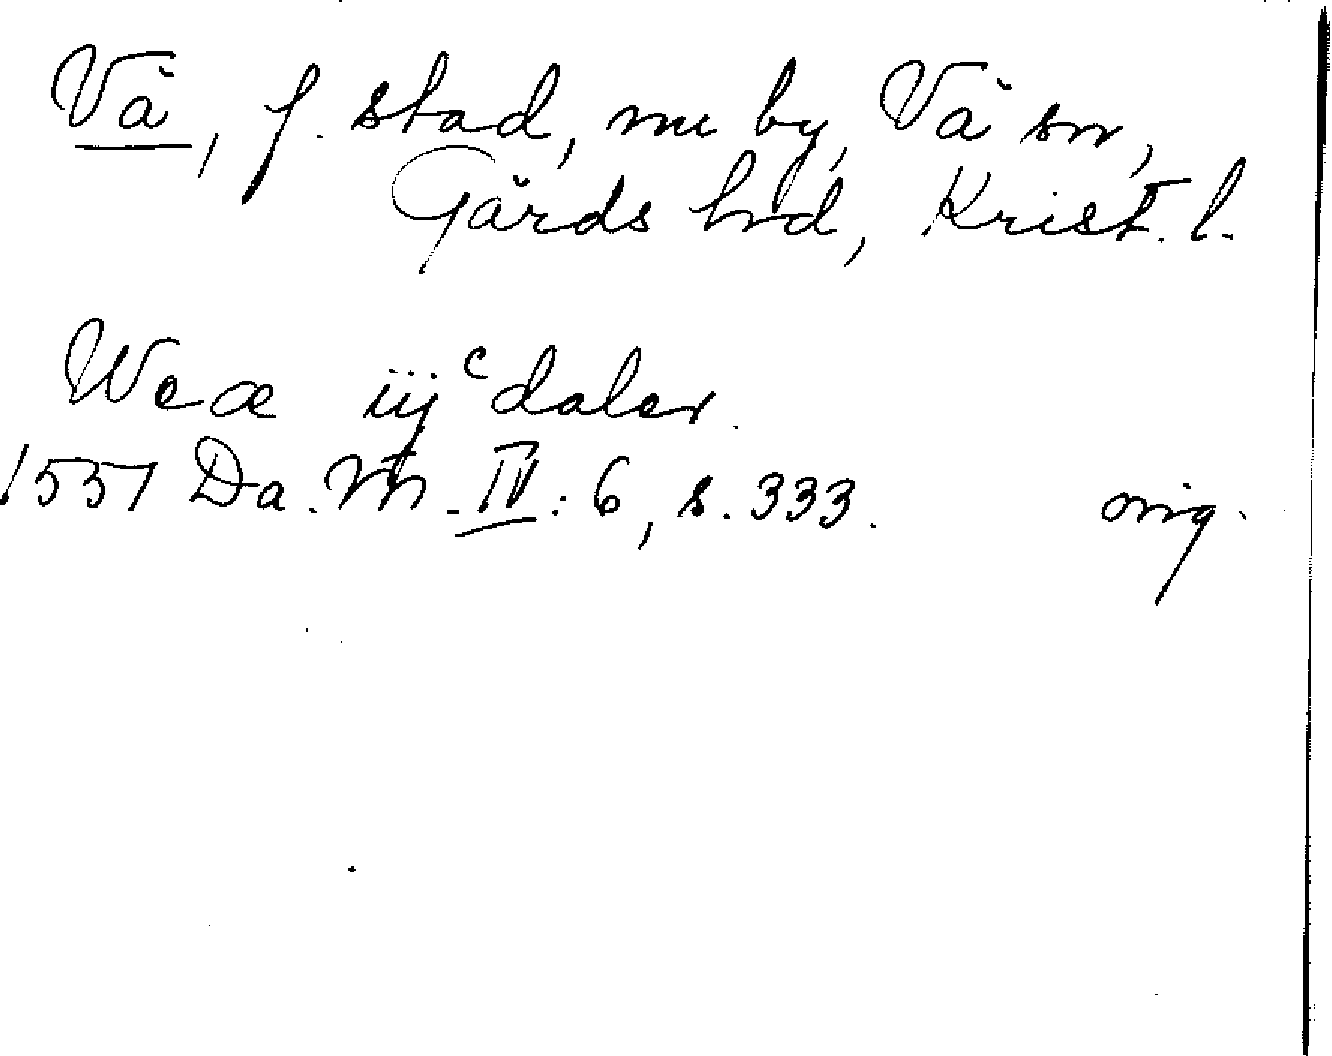 Vä, f. stad, nu by, Vä sn,
Gärds hrd, Krist. l.
Weæ iij c daler.
1537 Da. M. IV: 6, s. 333. orig.